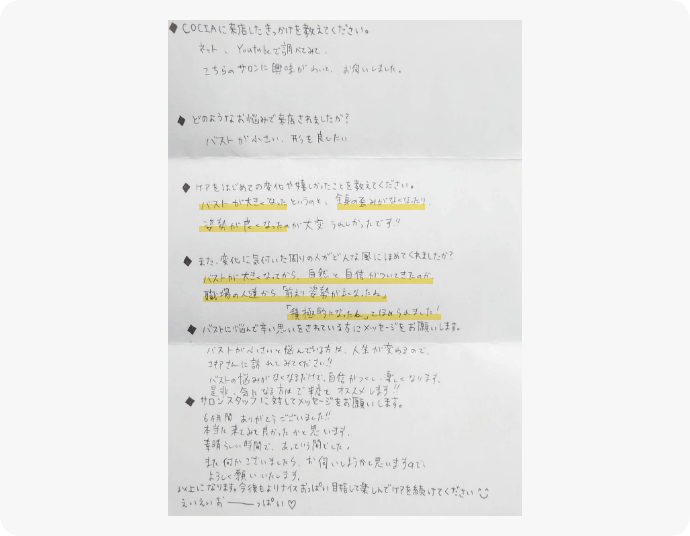 ◆ COCIAに来店したきっかけを教えてください。
ネット、Youtubeで調べてみて、
こちらのサロンに興味がわいて、お伺いしました。
◆ どのようなお悩みで来店されましたか?
バストが小さい、形を良したい
◆ ケアをはじめての変化や嬉しかったことを教えてください。
バストが大きくなったというのと、全身の歪みがなくなったり、
姿勢が良くなったのが大変うれしかったです!!
◆ また、変化に気付いた周りの人がどんな風にほめてくれましたか?
バストが大きくなってから、自然と自信がついてきたのか、
職場の人達から「前より姿勢がよくなったね。」
「積極的になったね」とほめられました!
◆ バストに悩んで辛い思いをされている方にメッセージをお願いします。
バストが小さいと悩んでいる方は、人生が変わるので、
コシアさんに訪れてみてください!!
バストの悩みがなくなるだけで、自信がつくし、楽しくなります。
是非、気になる方は オススメします!!
◆ サロンスタッフに対してメッセージをお願いします。
6ヵ月間 ありがとうございました!!
本当に来てみて良かったかと思います。
素晴らしい時間で、あっという間でした。
また何かございましたら、お伺いしようかと思いますので、
よろしく願いいたします。
以上になります。今後もよりナイスおっぱい目指して楽しんでケアを続けてください
えいえいおーっぱい♡